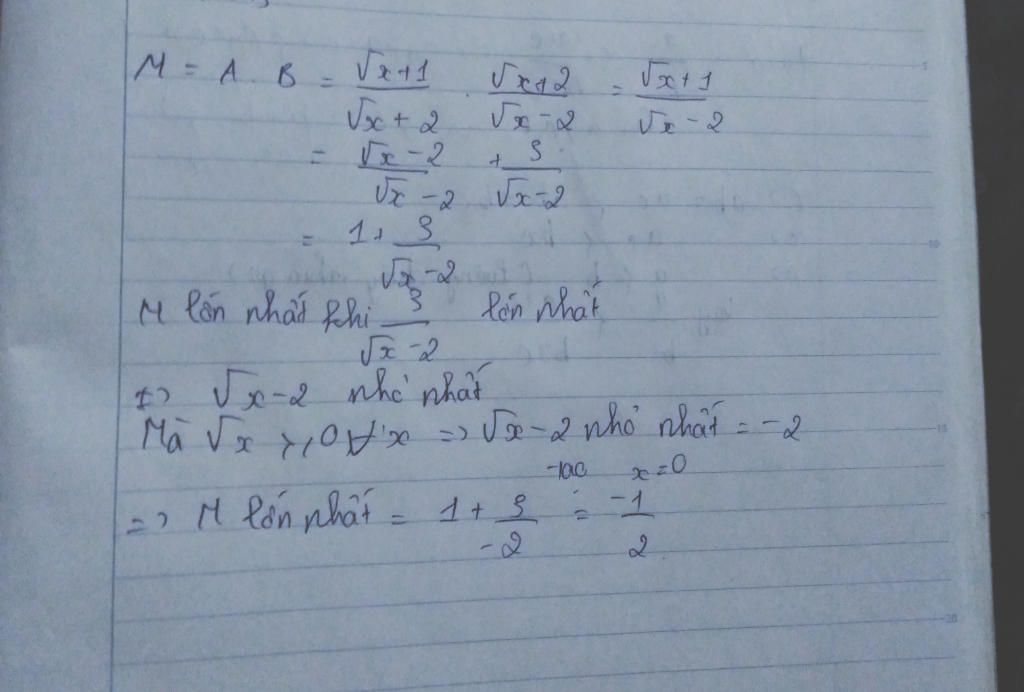 M = A . B = √x+1/√x+2 . √x+2/√x-2 = √x+1/√x-2
= √x-2/√x-2 + 3/√x-2
= 1 + 3/√x-2
M lớn nhất khi 3/√x-2 lớn nhất
=> √x-2 nhỏ nhất
Mà √x ≥ 0 ∀ x => √x-2 nhỏ nhất = -2
x=0
=> M lớn nhất = 1 + 3/-2 = -1/2